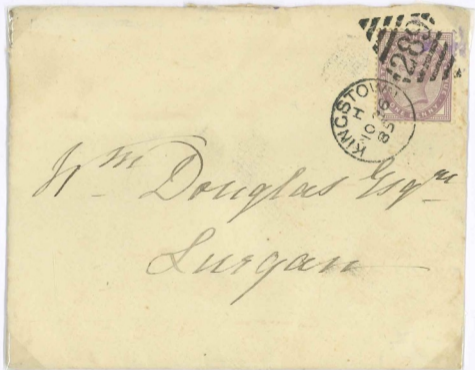 289
KINGSTOWN
H
85
Wm Douglas Esqre
Lurgan